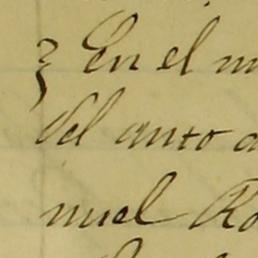 3 En el m
del auto a
nuel Ro